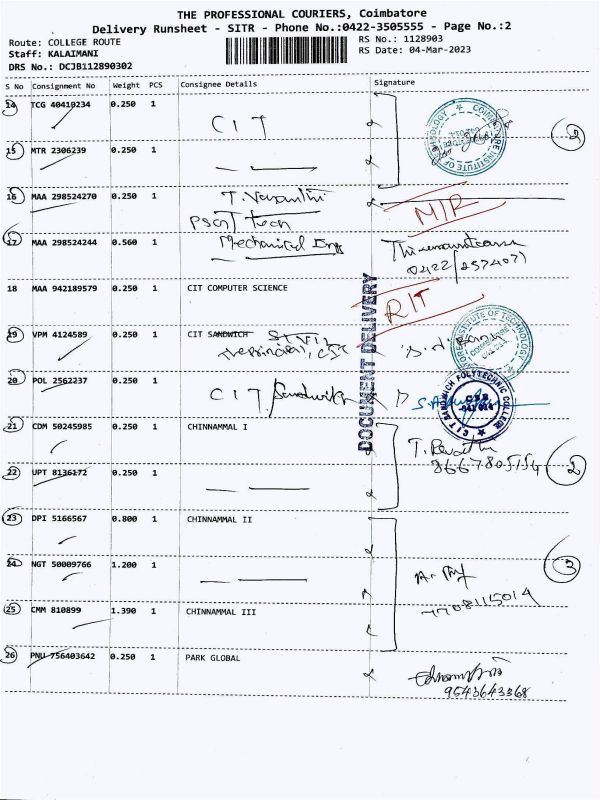 THE PROFESSIONAL COURIERS, Coimbatore
Delivery Runsheet - SITR - Phone No.:0422-3505555 - Page No.:2
Route: COLLEGE ROUTE
Staff: KALAIMANI
DRS No.: DCJB112890302
RS No.: 1128903
RS Date: 04-Mar-2023
S No Consignment No Weight PCS Consignee Details Signature
14 TCG 40410234 0.250 1 CIT
15 MTR 2306239 0.250 1
2
16 MAA 298524270 0.250 1 T. Vasanthi
PSG Tech
MIR
17 MAA 298524244 0.560 1 Mechanical Eng
0422/2574071
18 MAA 942189579 0.250 1 CIT COMPUTER SCIENCE
RIT
DOCUMENT DELIVERY
19 VPM 4124589 0.250 1 CIT SANDWICH
The Principal, CIT
20 POL 2562237 0.250 1 CIT/Sandwich
CIT SANDWICH POLYTECHNIC COLLEGE
21 CDM 50245985 0.250 1 CHINNAMMAL I
T. Revathi
8667805154
2
22 UPT 8136172 0.250 1
23 DPI 5166567 0.800 1 CHINNAMMAL II
24 NGT 50009766 1.200 1
3
7708115014
25 CMM 810899 1.390 1 CHINNAMMAL III
26 PNU 756403642 0.250 1 PARK GLOBAL
9543643368